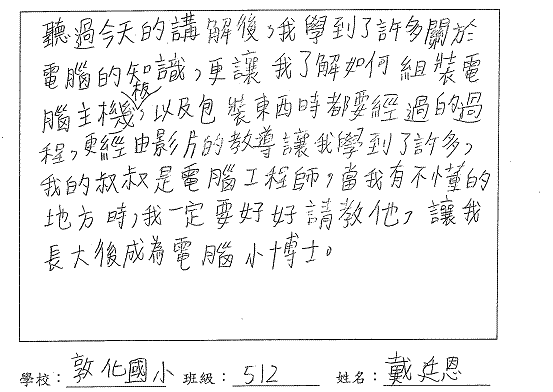 聽過今天的講解後，我學到了許多關於
電腦的知識，更讓我了解如何組裝電
腦主機板，以及包裝東西時都要經過的過
程，更經由影片的教導讓我學到了許多，
我的叔叔是電腦工程師，當我有不懂的
地方時，我一定要好好請教他，讓我
長大後成為電腦小博士。
學校：敦化國小 班級：512 姓名：戴廷恩